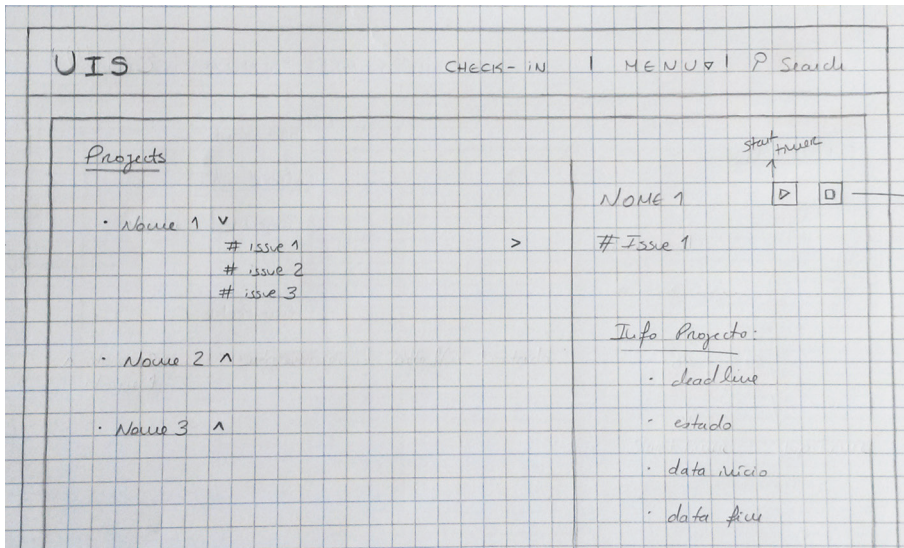 UIS
CHECK-IN | MENU ▽ | Search
Projects
• Nome 1 ∨
# issue 1 >
# issue 2
# issue 3
• Nome 2 ∧
• Nome 3 ∧
start
timer
NOME 1
# Issue 1
Info Projecto:
• deadline
• estado
• data início
• data fim